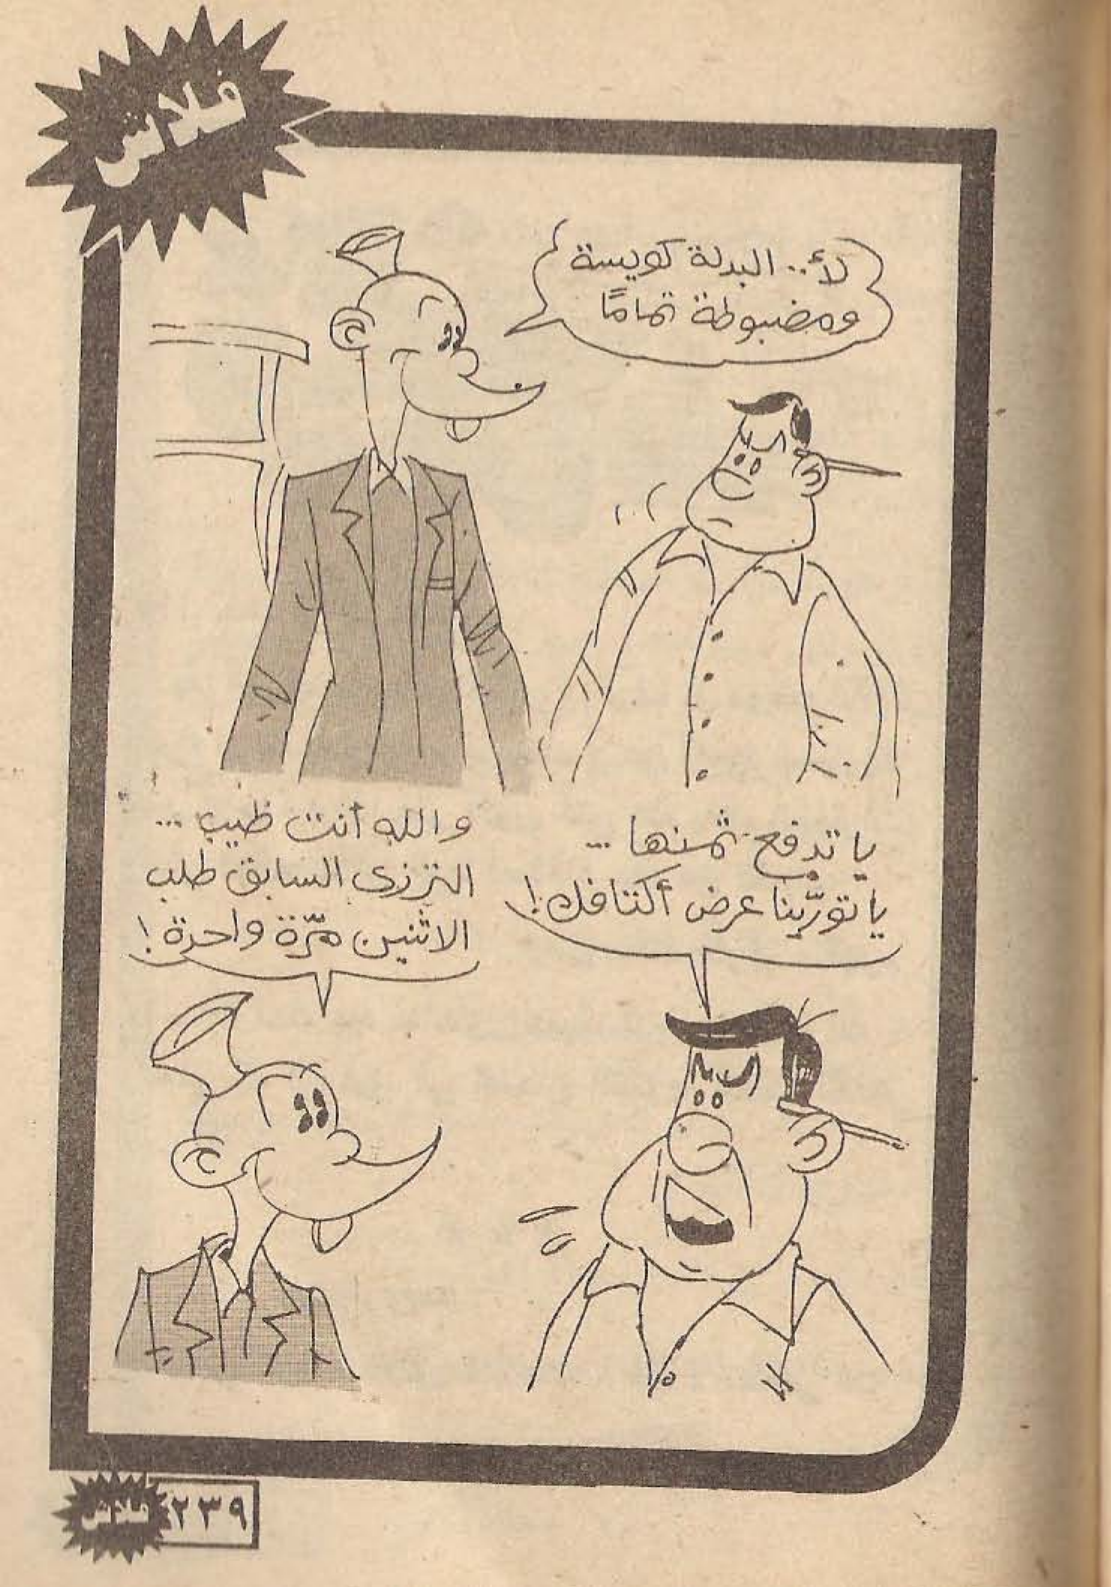 فلاش
لأ.. البدلة كويسة
ومضبوطة تمامًا
يا تدفع ثمنها ...
يا تورّينا عرض أكتافك!
والله أنت طيب ...
الترزى السابق طلب
الاثنين مرّة واحدة!
فلاش ٢٣٩